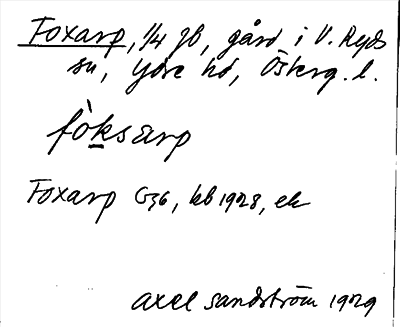 Foxarp, 1/4 gb, gård i V. Ryds
sn, Ydre hd, Österg. l.
fòksarp
Foxarp G36, kb 1928, ek
Axel Sandström 1929